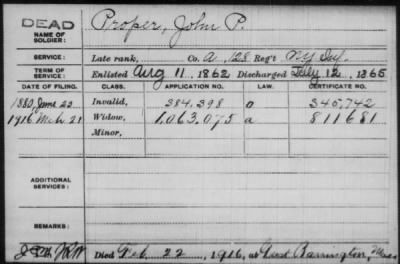 DEAD
NAME OF SOLDIER: Proper, John P.
SERVICE: Late rank, Co. A, 128 Reg't N.Y. Inf.
TERM OF SERVICE: Enlisted Aug 11, 1862 Discharged July 12, 1865
DATE OF FILING. CLASS. APPLICATION NO. LAW. CERTIFICATE NO.
1880 June 23 Invalid, 384,398 a 345,742
1916 Mch 21 Widow, 1,063,075 a 811681
Minor,
ADDITIONAL SERVICES:
REMARKS:
Died Feb. 22, 1916, at Great Barrington, Mass